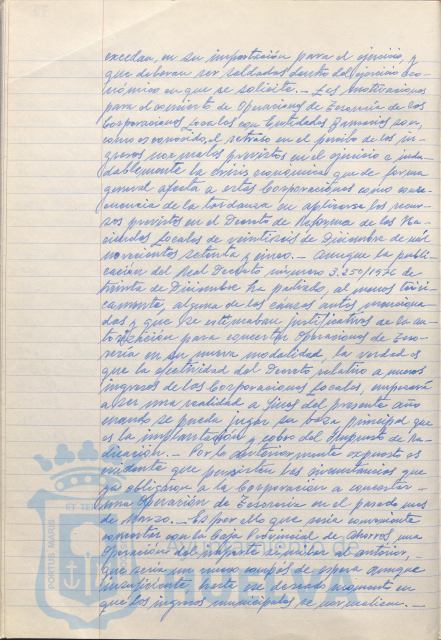 excedan, en su importación para el ejercicio, y
que deberan ser saldadas dentro del ejercicio Eco-
nómico en que se solicite.- Las motivaciones
para el concierto de Operaciones de Tesorería de las
Corporaciones Locales con Entidades Bancarias son,
como es conocido, el retraso en el percibo de los in-
gresos normales previstos en el ejercicio e indu-
dablemente la crisis económica que de forma
general afecta a estas Corporaciones como conse-
cuencia de la tardanza en aplicarse los recur-
sos previstos en el Decreto de Reforma de las Ha-
ciendas Locales de veintiseis de Diciembre de mil
novecientos setenta y cinco.- Aunque la publi-
cación del Real Decreto número 3.250/1976 de
treinta de Diciembre ha paliado, al menos teóri-
camente, alguna de las causas antes menciona-
das y que se estimaban justificativas de la au-
torización para concertar Operaciones de Teso-
rería en su nueva modalidad, la verdad es
que la efectividad del Decreto relativo a nuevos
ingresos de las Corporaciones Locales, empezará
a ser una realidad a fines del presente año
cuando se pueda lugar su baza principal que
es la implantación y cobro del Impuesto de Ra-
dicación.- Por lo anteriormente expuesto es
evidente que persisten las circunstancias que
ya obligaron a la Corporación a concertar
una Operación de Tesorería en el pasado mes
de Marzo.- Es por ello que sería conveniente
concertar con la Caja Provincial de Ahorros, una
Operación del importe similar al anterior,-
que sería un nuevo compás de espera aunque
insuficiente hasta ese deseado momento en
que los ingresos municipales se normalicen.-
PORTUS MARIS ET TERRAE
HUELVA